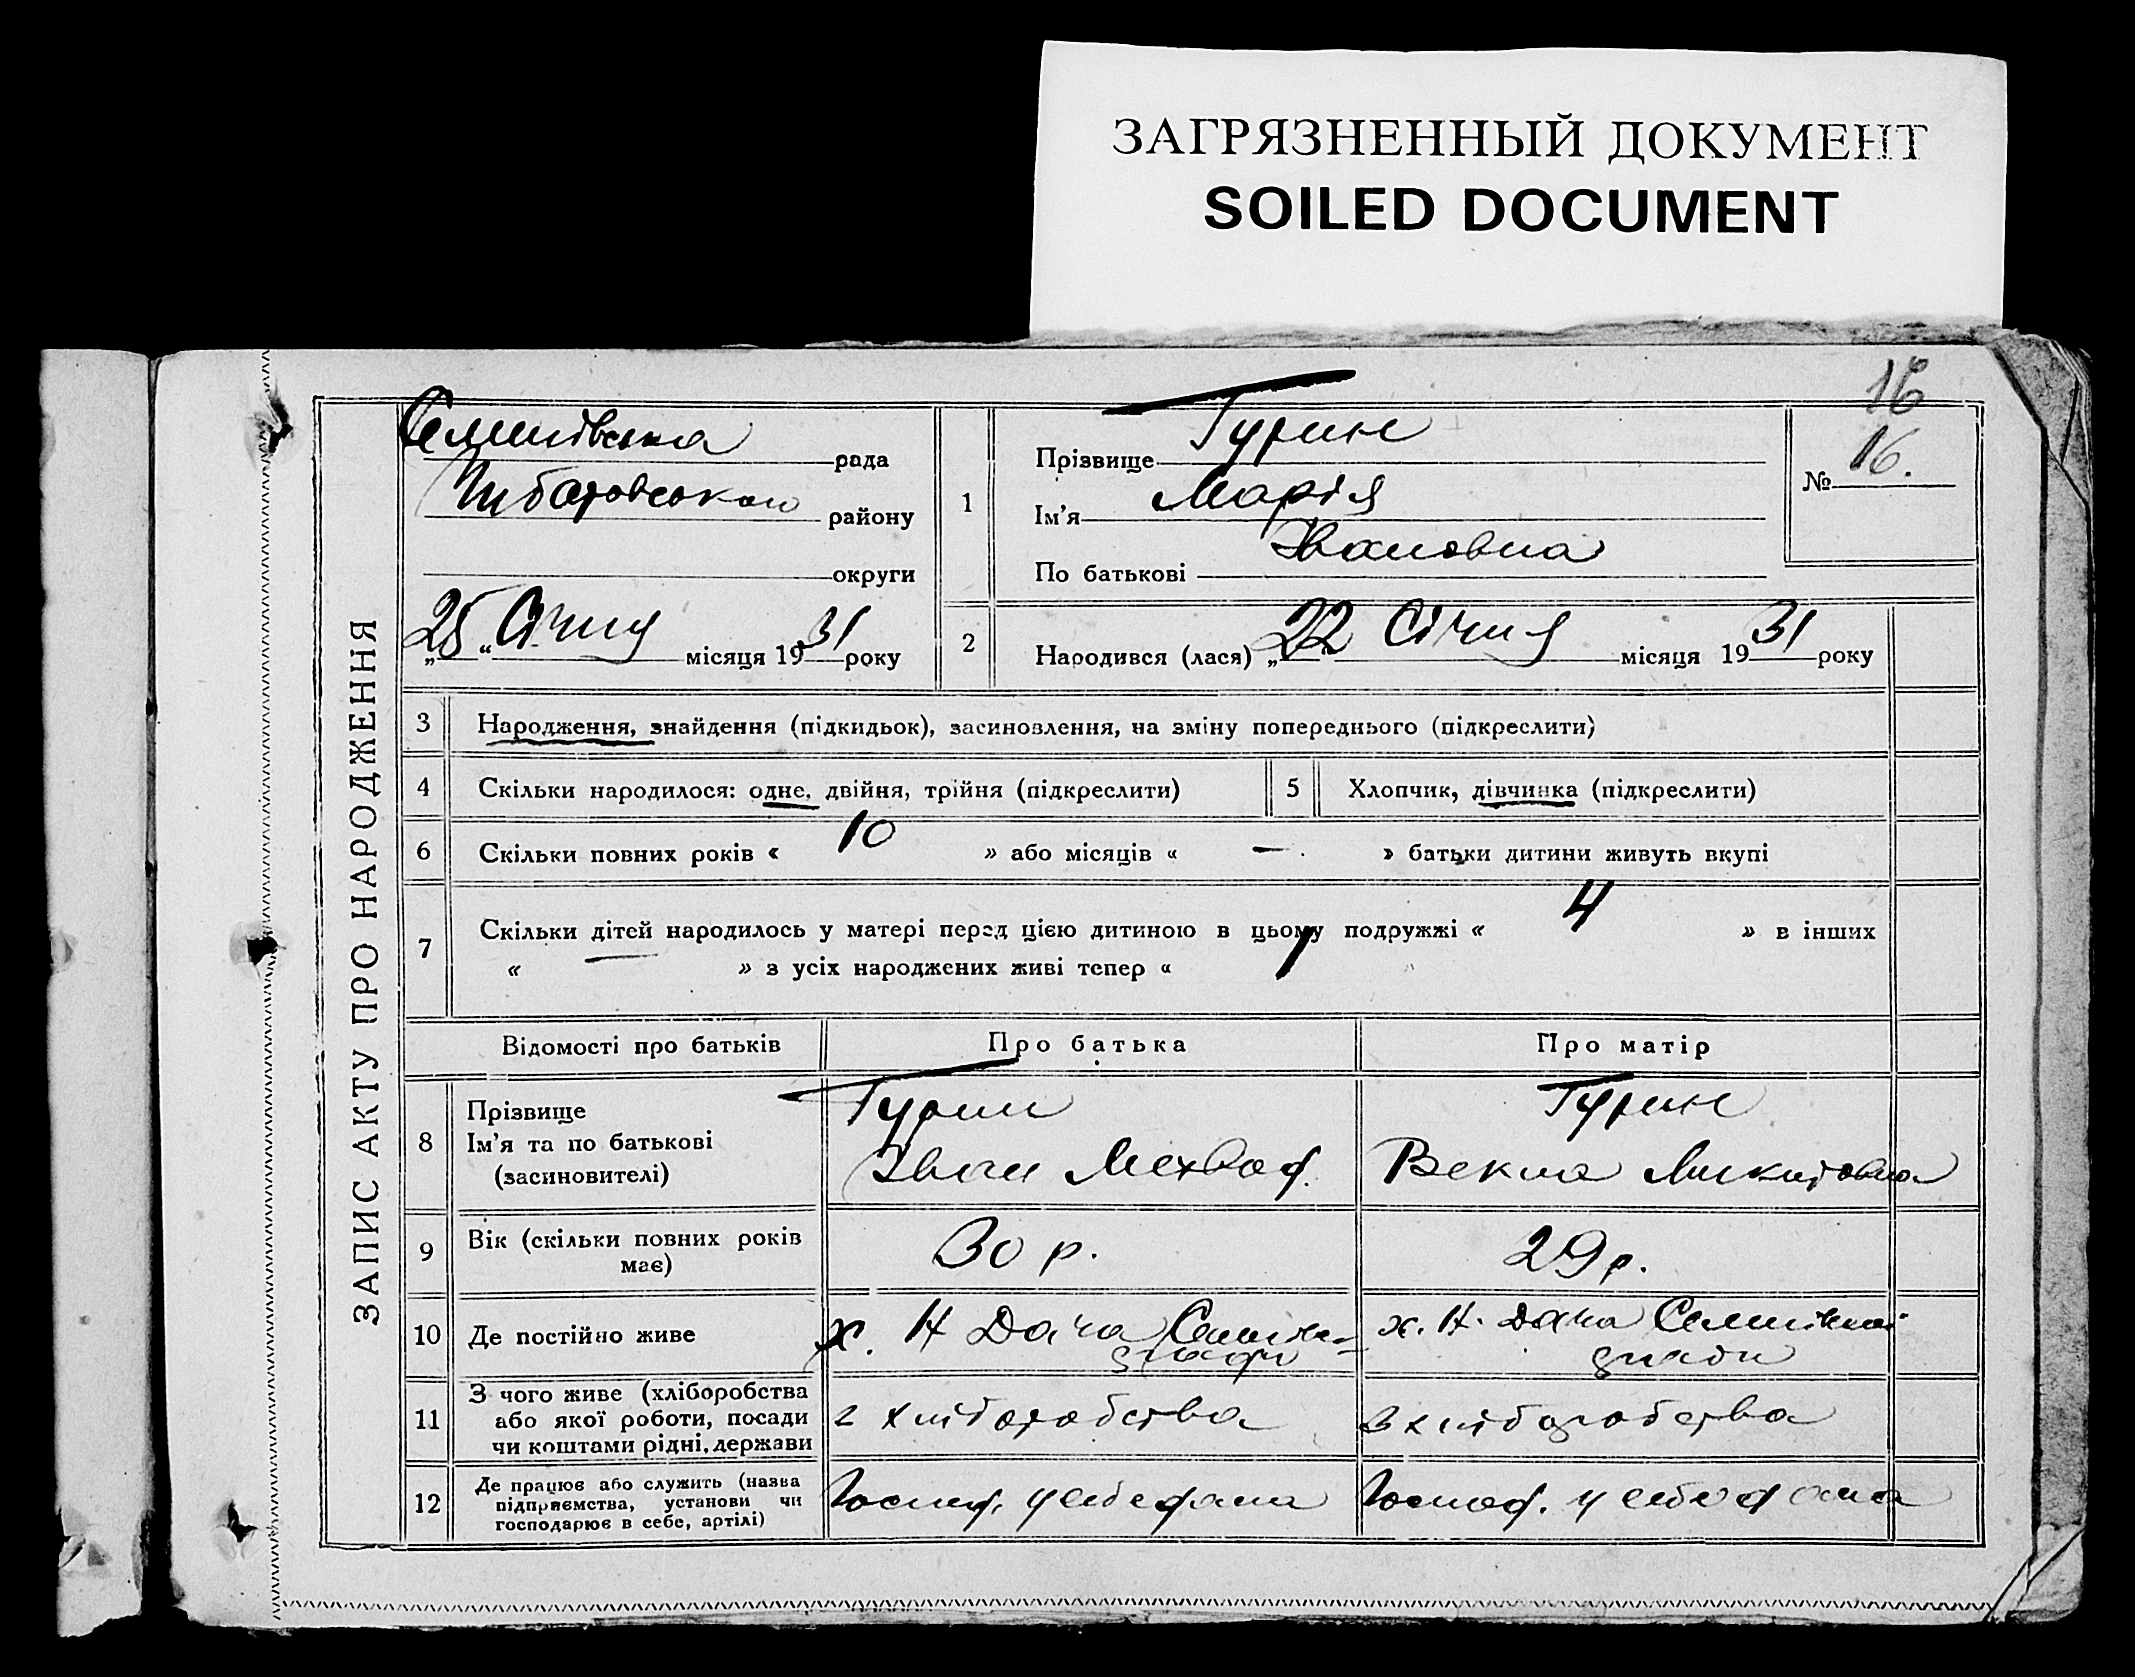 ЗАГРЯЗНЕННЫЙ ДОКУМЕНТ
SOILED DOCUMENT
16
ЗАПИС АКТУ ПРО НАРОДЖЕННЯ
рада
району
округи
„25“ Січня місяця 1931 року
1
Прізвище Гурин
Ім'я Марія
По батькові Івановна
№ 16.
2
Народився (лася) „22 Січня місяця 1931 року
3 Народження, знайдення (підкидьок), засиновлення, на зміну попереднього (підкреслити)
4 Скільки народилося: одне, двійня, трійня (підкреслити)
5 Хлопчик, дівчинка (підкреслити)
6 Скільки повних років « 10 » або місяців « — » батьки дитини живуть вкупі
7 Скільки дітей народилось у матері перед цією дитиною в цьому подружжі « 4 » в інших
« — » з усіх народжених живі тепер « 1
Відомості про батьків
Про батька
Про матір
8 Прізвище
Ім'я та по батькові
(засиновителі)
Гурин
Іван
Гурин
Векла Микитовна
9 Вік (скільки повних років
має)
30 р.
29 р.
10 Де постійно живе
х. Н Дача
х. Н. Дача
11 З чого живе (хліборобства
або якої роботи, посади
чи коштами рідні, держави
з хліборобства
з хліборобства
12 Де працює або служить (назва
підприємства, установи чи
господарює в себе, артілі)
Господ. у себе
Господ. у себе